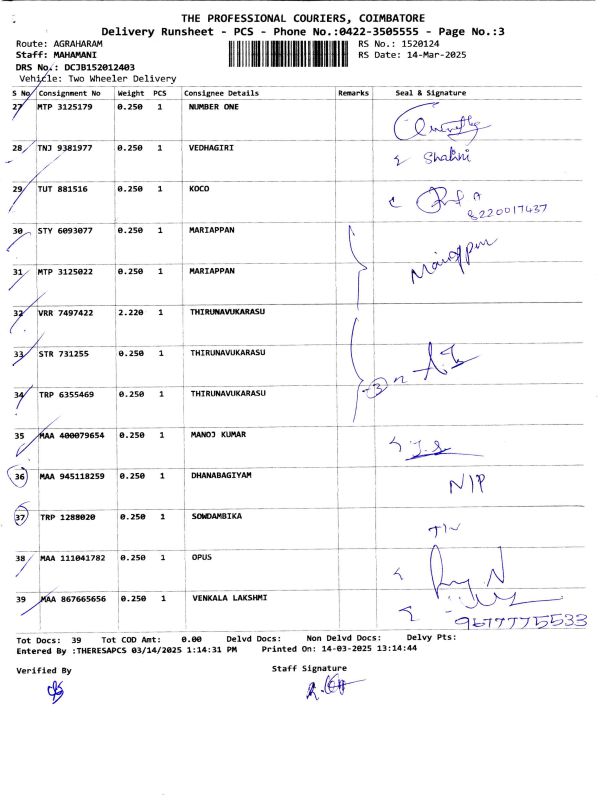 THE PROFESSIONAL COURIERS, COIMBATORE
Delivery Runsheet - PCS - Phone No.:0422-3505555 - Page No.:3
Route: AGRAHARAM RS No.: 1520124
Staff: MAHAMANI RS Date: 14-Mar-2025
DRS No.: DCJB152012403
Vehicle: Two Wheeler Delivery
S No Consignment No Weight PCS Consignee Details Remarks Seal & Signature
27 MTP 3125179 0.250 1 NUMBER ONE
28 TNJ 9381977 0.250 1 VEDHAGIRI Shalini
29 TUT 881516 0.250 1 KOCO
8220017437
30 STY 6093077 0.250 1 MARIAPPAN
31 MTP 3125022 0.250 1 MARIAPPAN Mariappan
32 VRR 7497422 2.220 1 THIRUNAVUKARASU
33 STR 731255 0.250 1 THIRUNAVUKARASU
34 TRP 6355469 0.250 1 THIRUNAVUKARASU 3
35 MAA 400079654 0.250 1 MANOJ KUMAR
36 MAA 945118259 0.250 1 DHANABAGIYAM N/P
37 TRP 1288020 0.250 1 SOWDAMBIKA
38 MAA 111041782 0.250 1 OPUS
39 MAA 867665656 0.250 1 VENKALA LAKSHMI
9677775533
Tot Docs: 39 Tot COD Amt: 0.00 Delvd Docs: Non Delvd Docs: Delvy Pts:
Entered By :THERESAPCS 03/14/2025 1:14:31 PM Printed On: 14-03-2025 13:14:44
Verified By Staff Signature